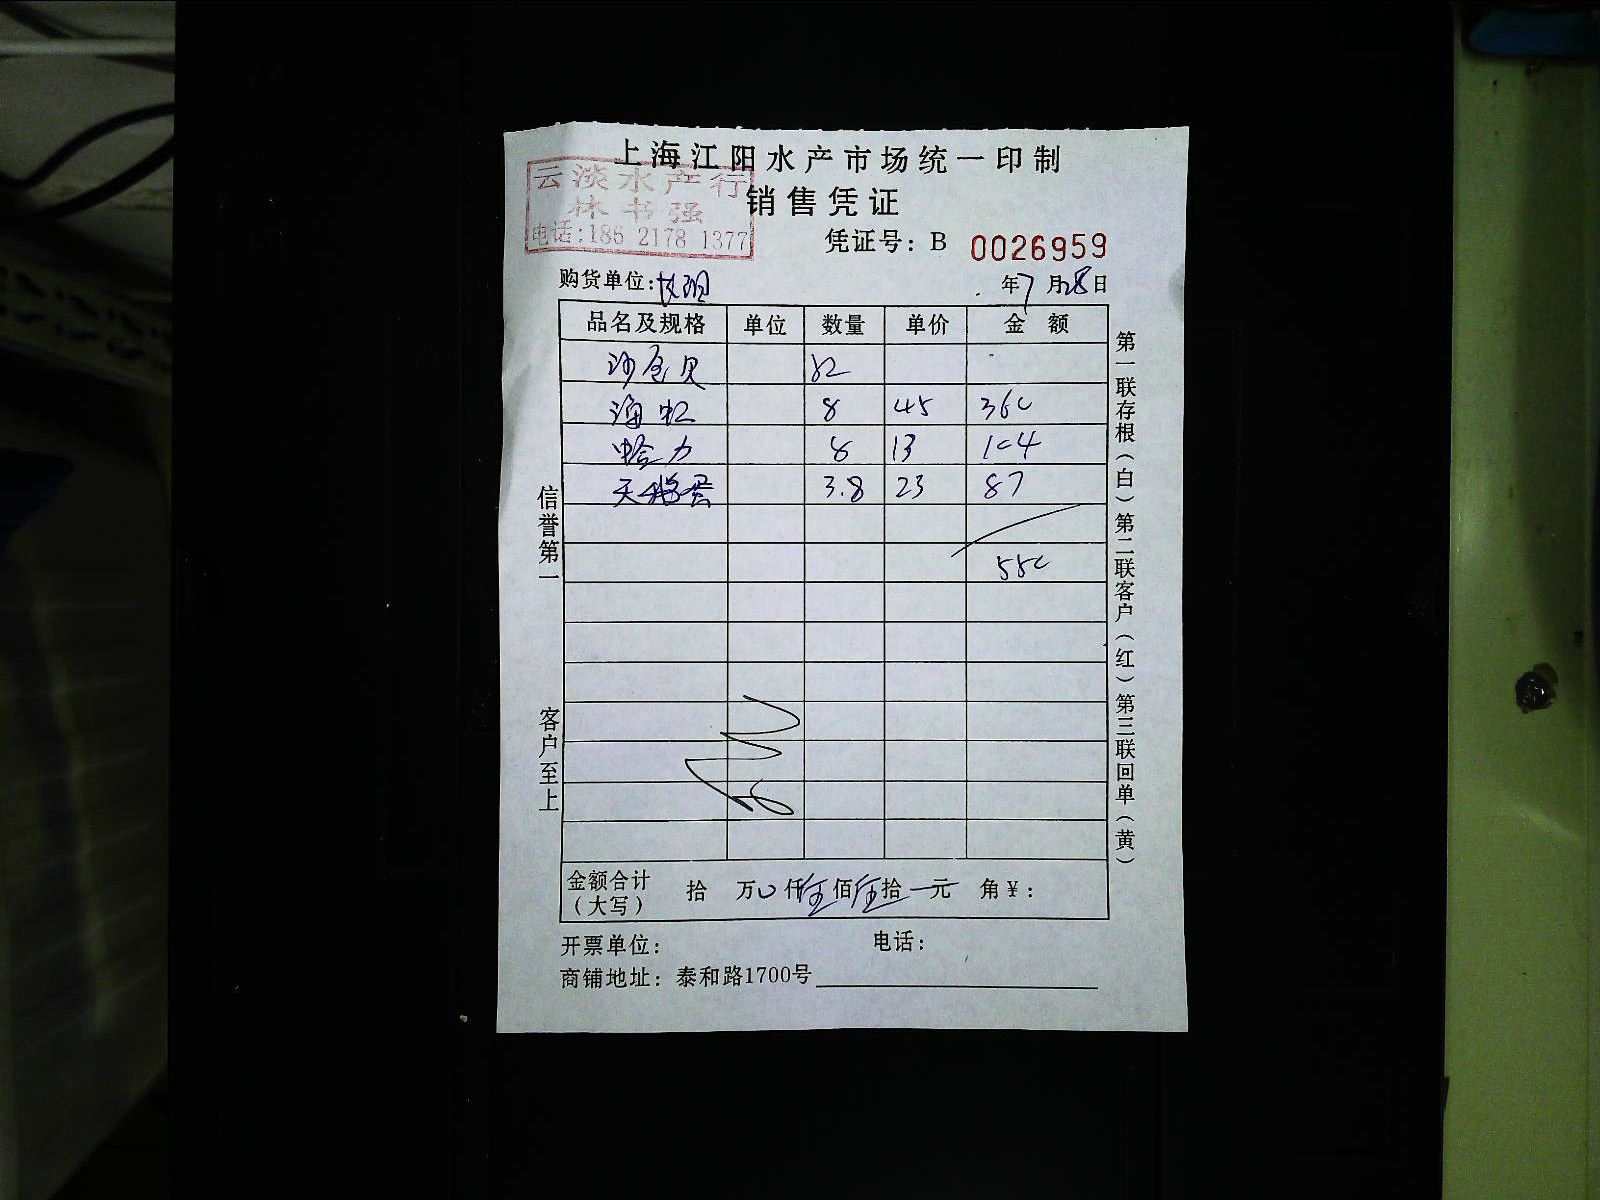 上海江阳水产市场统一印制
云淡水产行
林书强
电话:186 2178 1377
销售凭证
凭证号: B 0026959
购货单位:
年7月28日
品名及规格 单位 数量 单价 金额
沙包贝 82
海虹 8 45 360
蛤力 8 13 104
天鹅蛋 3.8 23 87
550
信誉第一
客户至上
第一联存根(白)第二联客户(红)第三联回单(黄)
金额合计(大写) 拾 万0仟伍佰伍拾一元 角¥:
开票单位: 电话:
商铺地址: 泰和路1700号